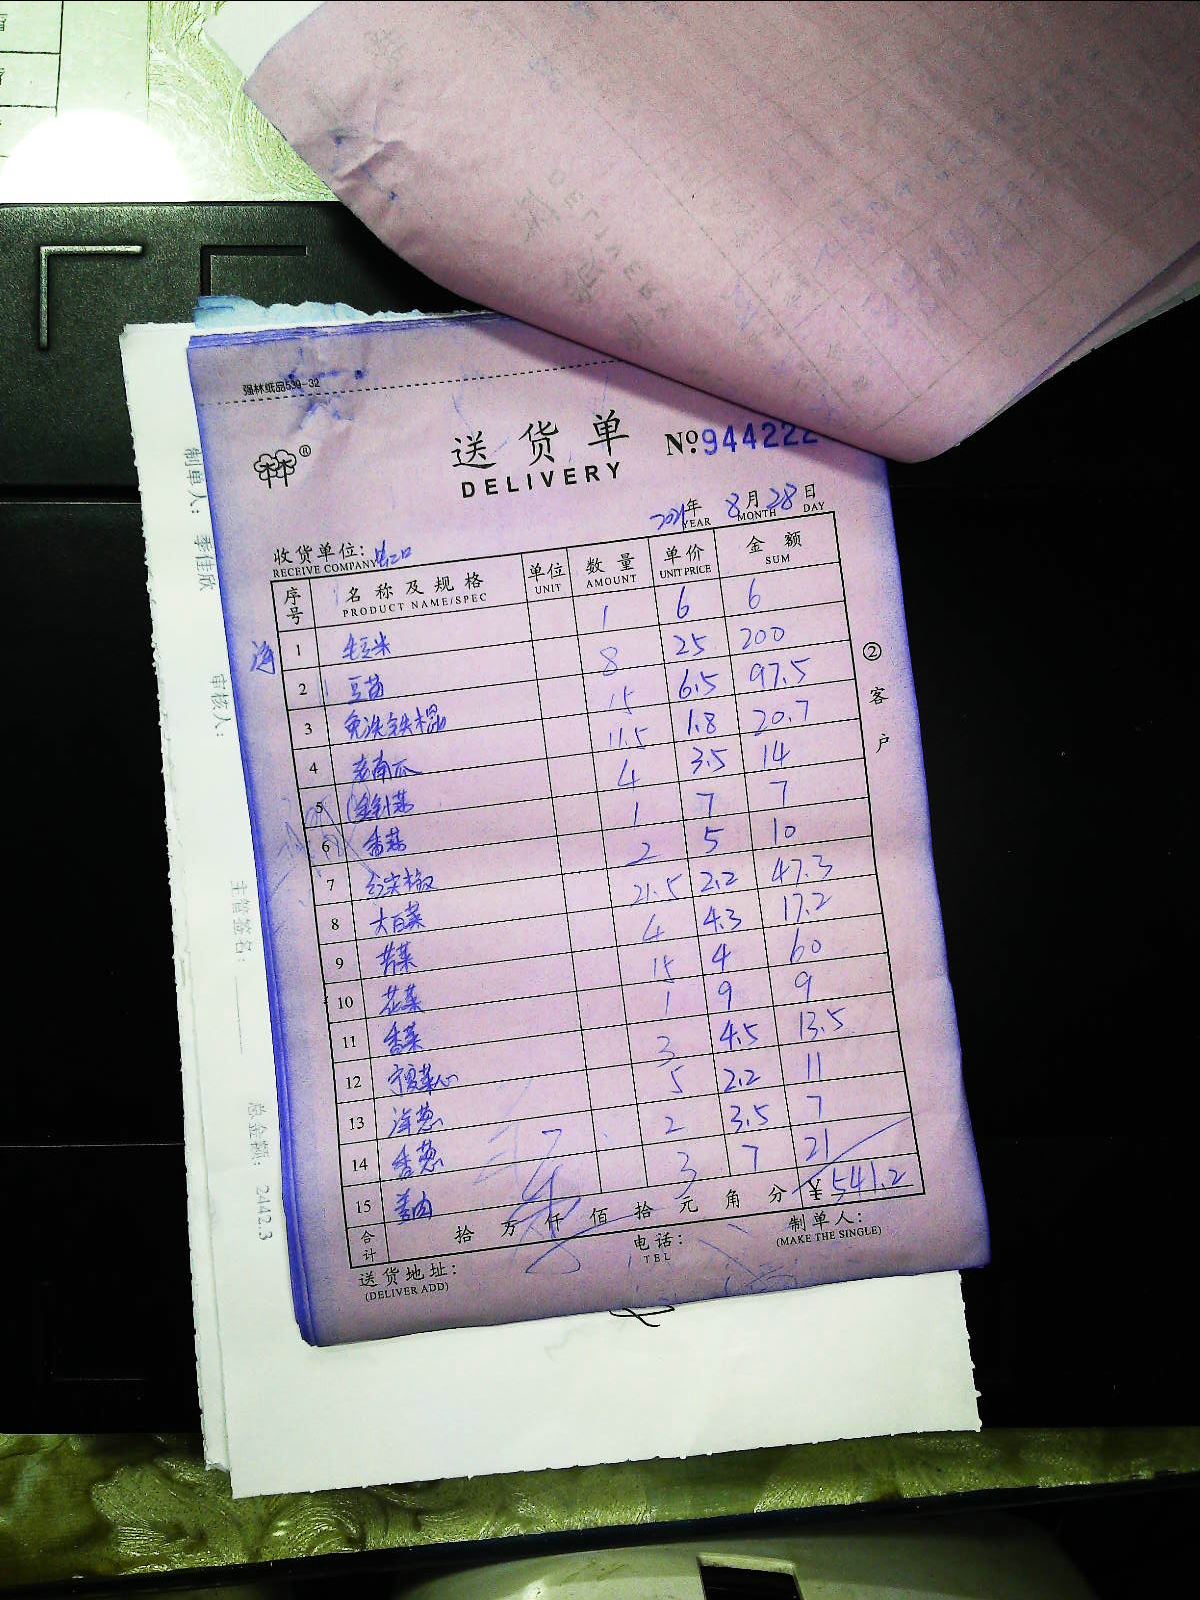 强林纸品539-32
送货单
DELIVERY
№944222
2021年 8月28日
YEAR MONTH DAY
收货单位:
RECEIVE COMPANY
序号 名称及规格 单位 数量 单价 金额
PRODUCT NAME/SPEC UNIT AMOUNT UNIT PRICE SUM
1 毛豆米 1 6 6
2 豆苗 8 25 200
3 免洗铁棍 15 6.5 97.5
4 老南瓜 11.5 1.8 20.7
5 4 3.5 14
6 香菇 1 7 7
7 红尖椒 2 5 10
8 大白菜 21.5 2.2 47.3
9 芹菜 4 4.3 17.2
10 花菜 15 4 60
11 香菜 1 9 9
12 宁夏菜心 3 4.5 13.5
13 洋葱 5 2.2 11
14 香葱 2 3.5 7
15 姜肉 3 7 21
合计 拾万仟佰拾元角分 ¥541.2
送货地址:
(DELIVER ADD)
电话:
TEL
制单人:
(MAKE THE SINGLE)
②客户
制单人: 季佳欣
审核人:
主管签名:
总金额: 2442.3